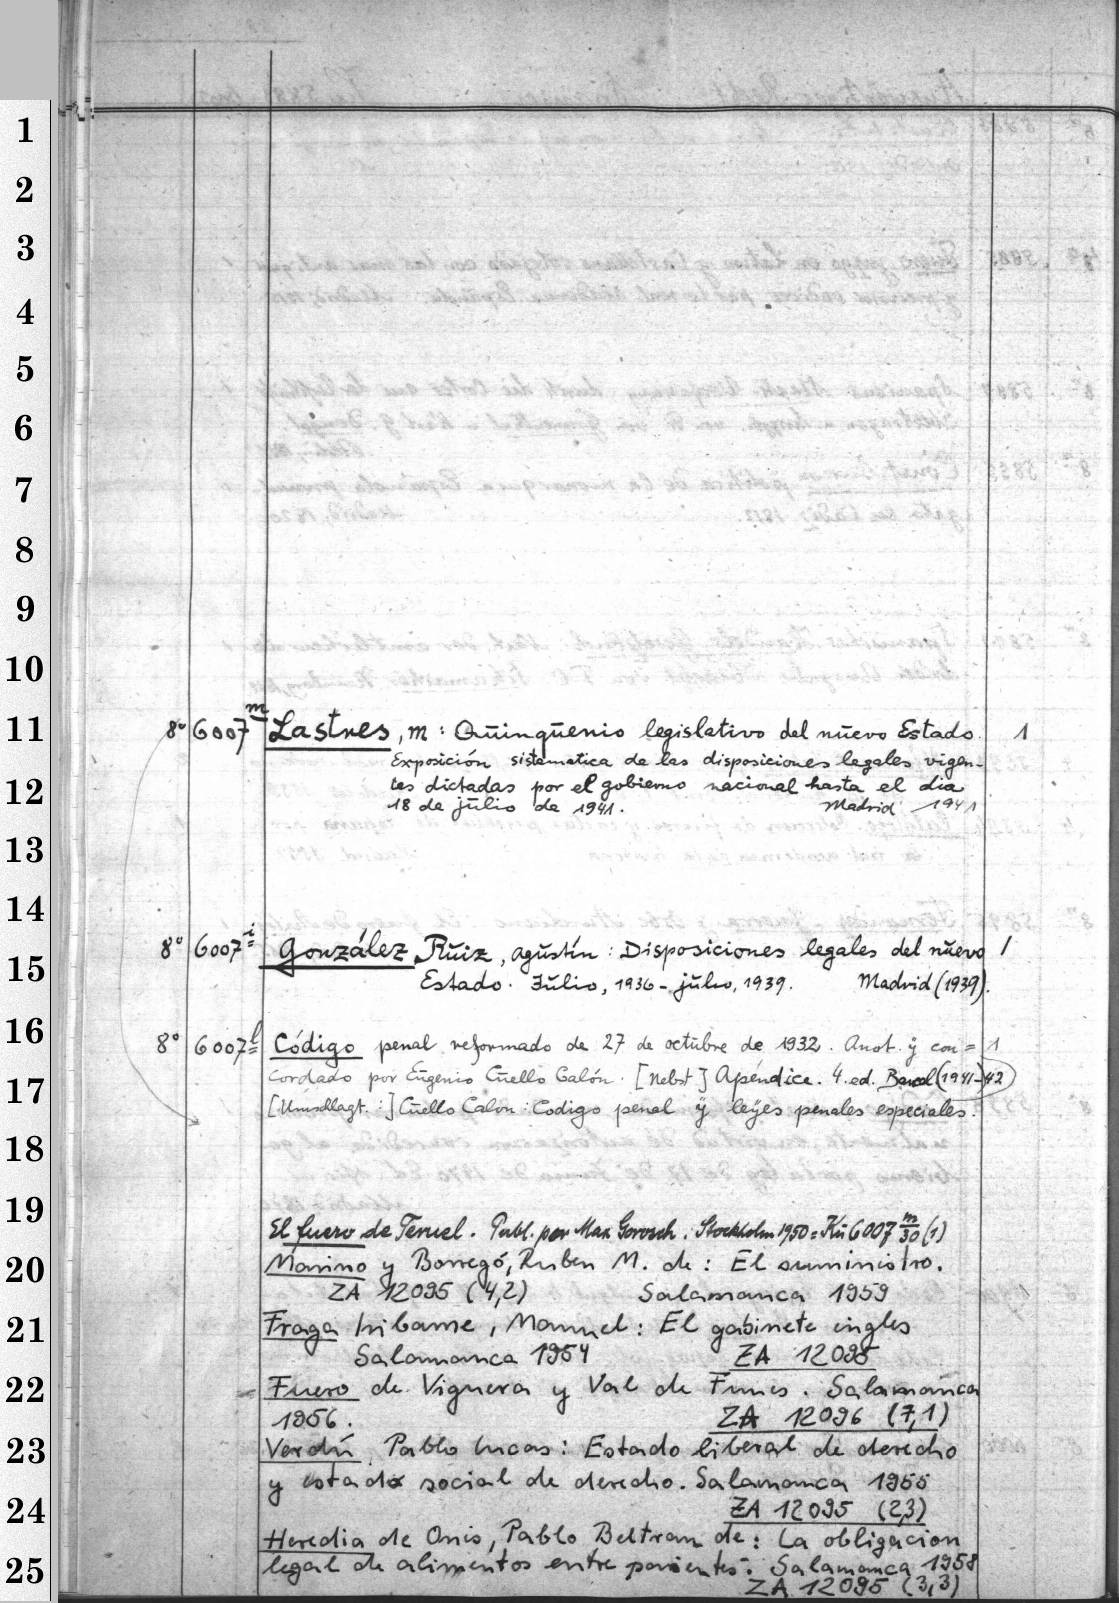 1
2
3
4
5
6
7
8
9
10
11
12
13
14
15
16
17
18
19
20
21
22
23
24
25
8° 6007 m Lastres, m: Quinquenio legislativo del nuevo Estado. 1
Exposición sistematica de las disposiciones legales vigen-
tes dictadas por el gobierno nacional hasta el dia
18 de julio de 1941. Madrid 1941
8° 6007 i González Ruiz, agustín: Disposiciones legales del nuevo 1
Estado. Julio, 1936 - julio, 1939. Madrid (1939).
8° 6007 l Código penal reformado de 27 de octubre de 1932. Anot. y con= 1
cordado por Eugenio Cuello Calón. [Nebst] Apéndice. 4. ed. Barcel (1941-42)
[Umschlagt.:] Cuello Calon: Codigo penal y leyes penales especiales.
El fuero de Teruel. Publ. por Max Gorosch. Stockholm 1950 = Kü 6007 m/30 (1)
Marino y Borregó, Ruben M. de: El suministro.
ZA 12095 (4,2) Salamanca 1959
Fraga Iribarne, Manuel: El gabinete ingles
Salamanca 1954 ZA 12095
Fuero de Viguera y Val de Funes. Salamanca
1956. ZA 12096 (7,1)
Verdú, Pablo Lucas: Estado liberal de derecho
y estado social de derecho. Salamanca 1955
ZA 12095 (2,3)
Heredia de Onis, Pablo Beltran de: La obligacion
legal de alimentos entre parientes. Salamanca 1958
ZA 12095 (3,3)